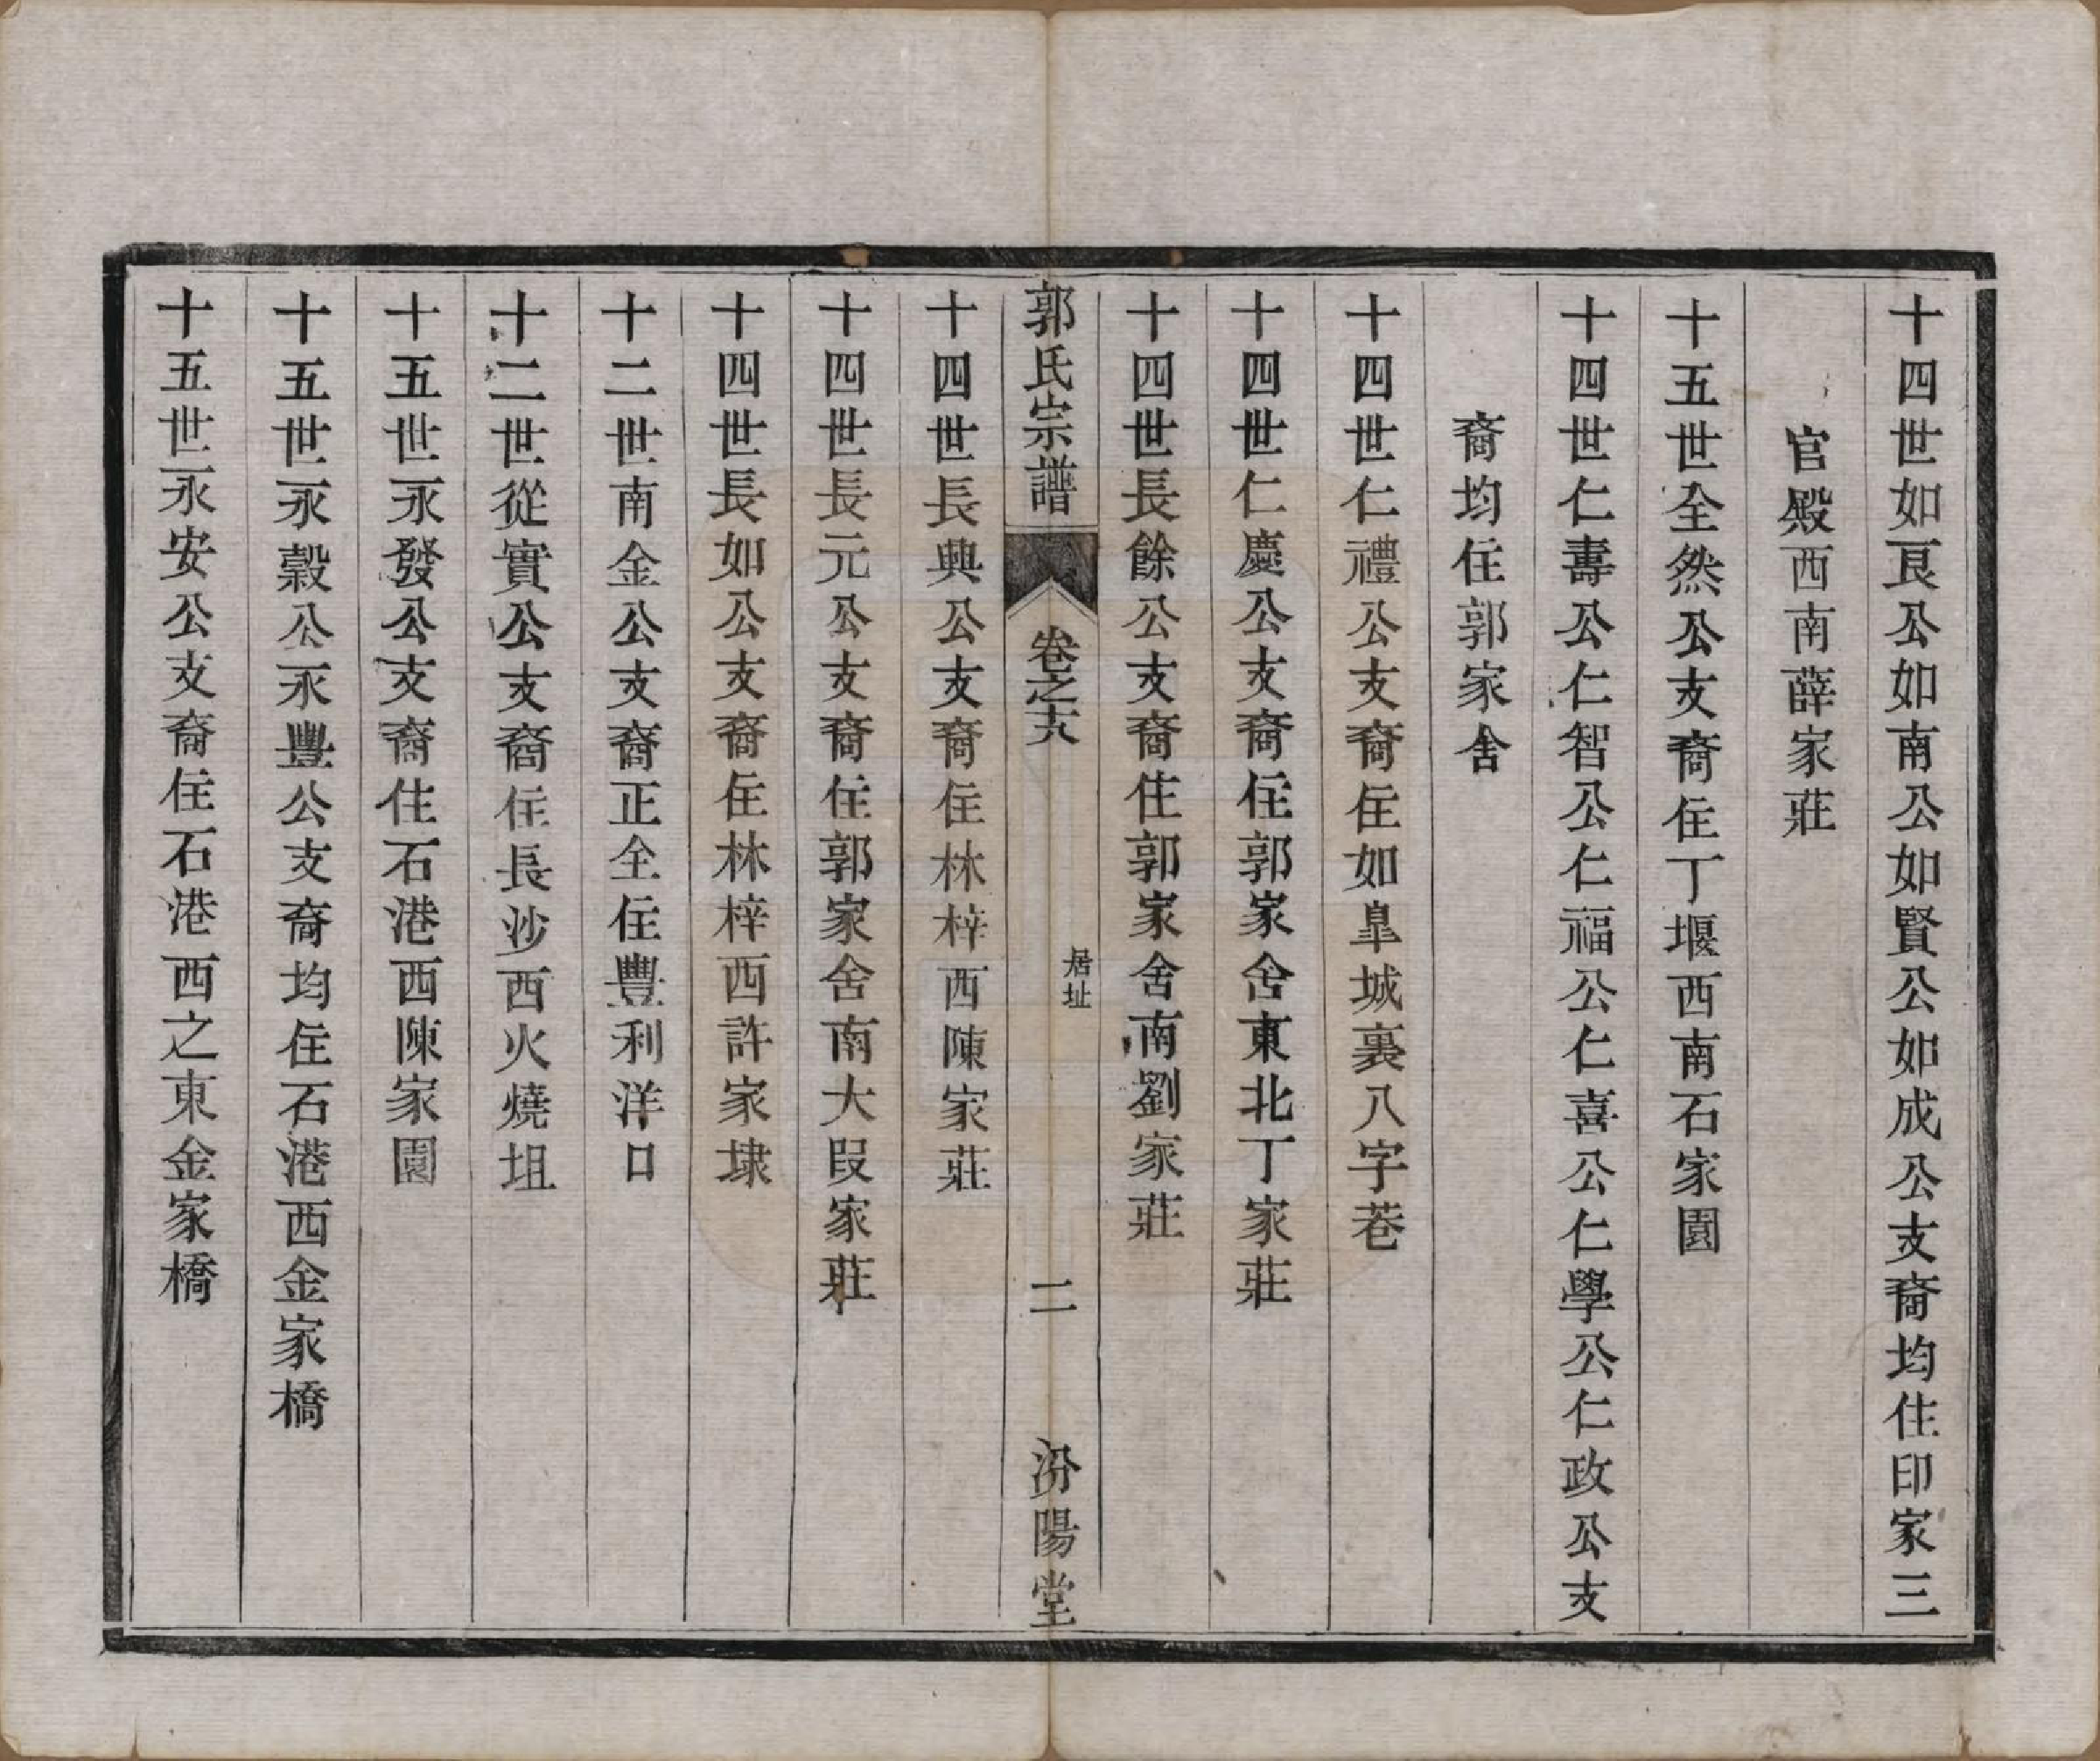 十四世如良公如南公如賢公如成公支裔均住印家三
官殿西南薛家莊
十五世全然公支裔住丁堰西南石家園
十四世仁壽公仁智公仁福公仁喜公仁學公仁政公支
裔均住郭家舍
十四世仁禮公支裔住如臯城裏八字巷
十四世仁慶公支裔住郭家舍東北丁家莊
十四世長餘公支裔住郭家舍南劉家莊
郭氏宗譜
卷之十八
居址
二
汾陽堂
十四世長興公支裔住林梓西陳家莊
十四世長元公支裔住郭家舍南大段家莊
十四世長如公支裔住林梓西許家埭
十二世南金公支裔正全住豐利洋口
十二世從實公支裔住長沙西火燒坦
十五世永發公支裔住石港西陳家園
十五世永穀公永豐公支裔均住石港西金家橋
十五世永安公支裔住石港西之東金家橋